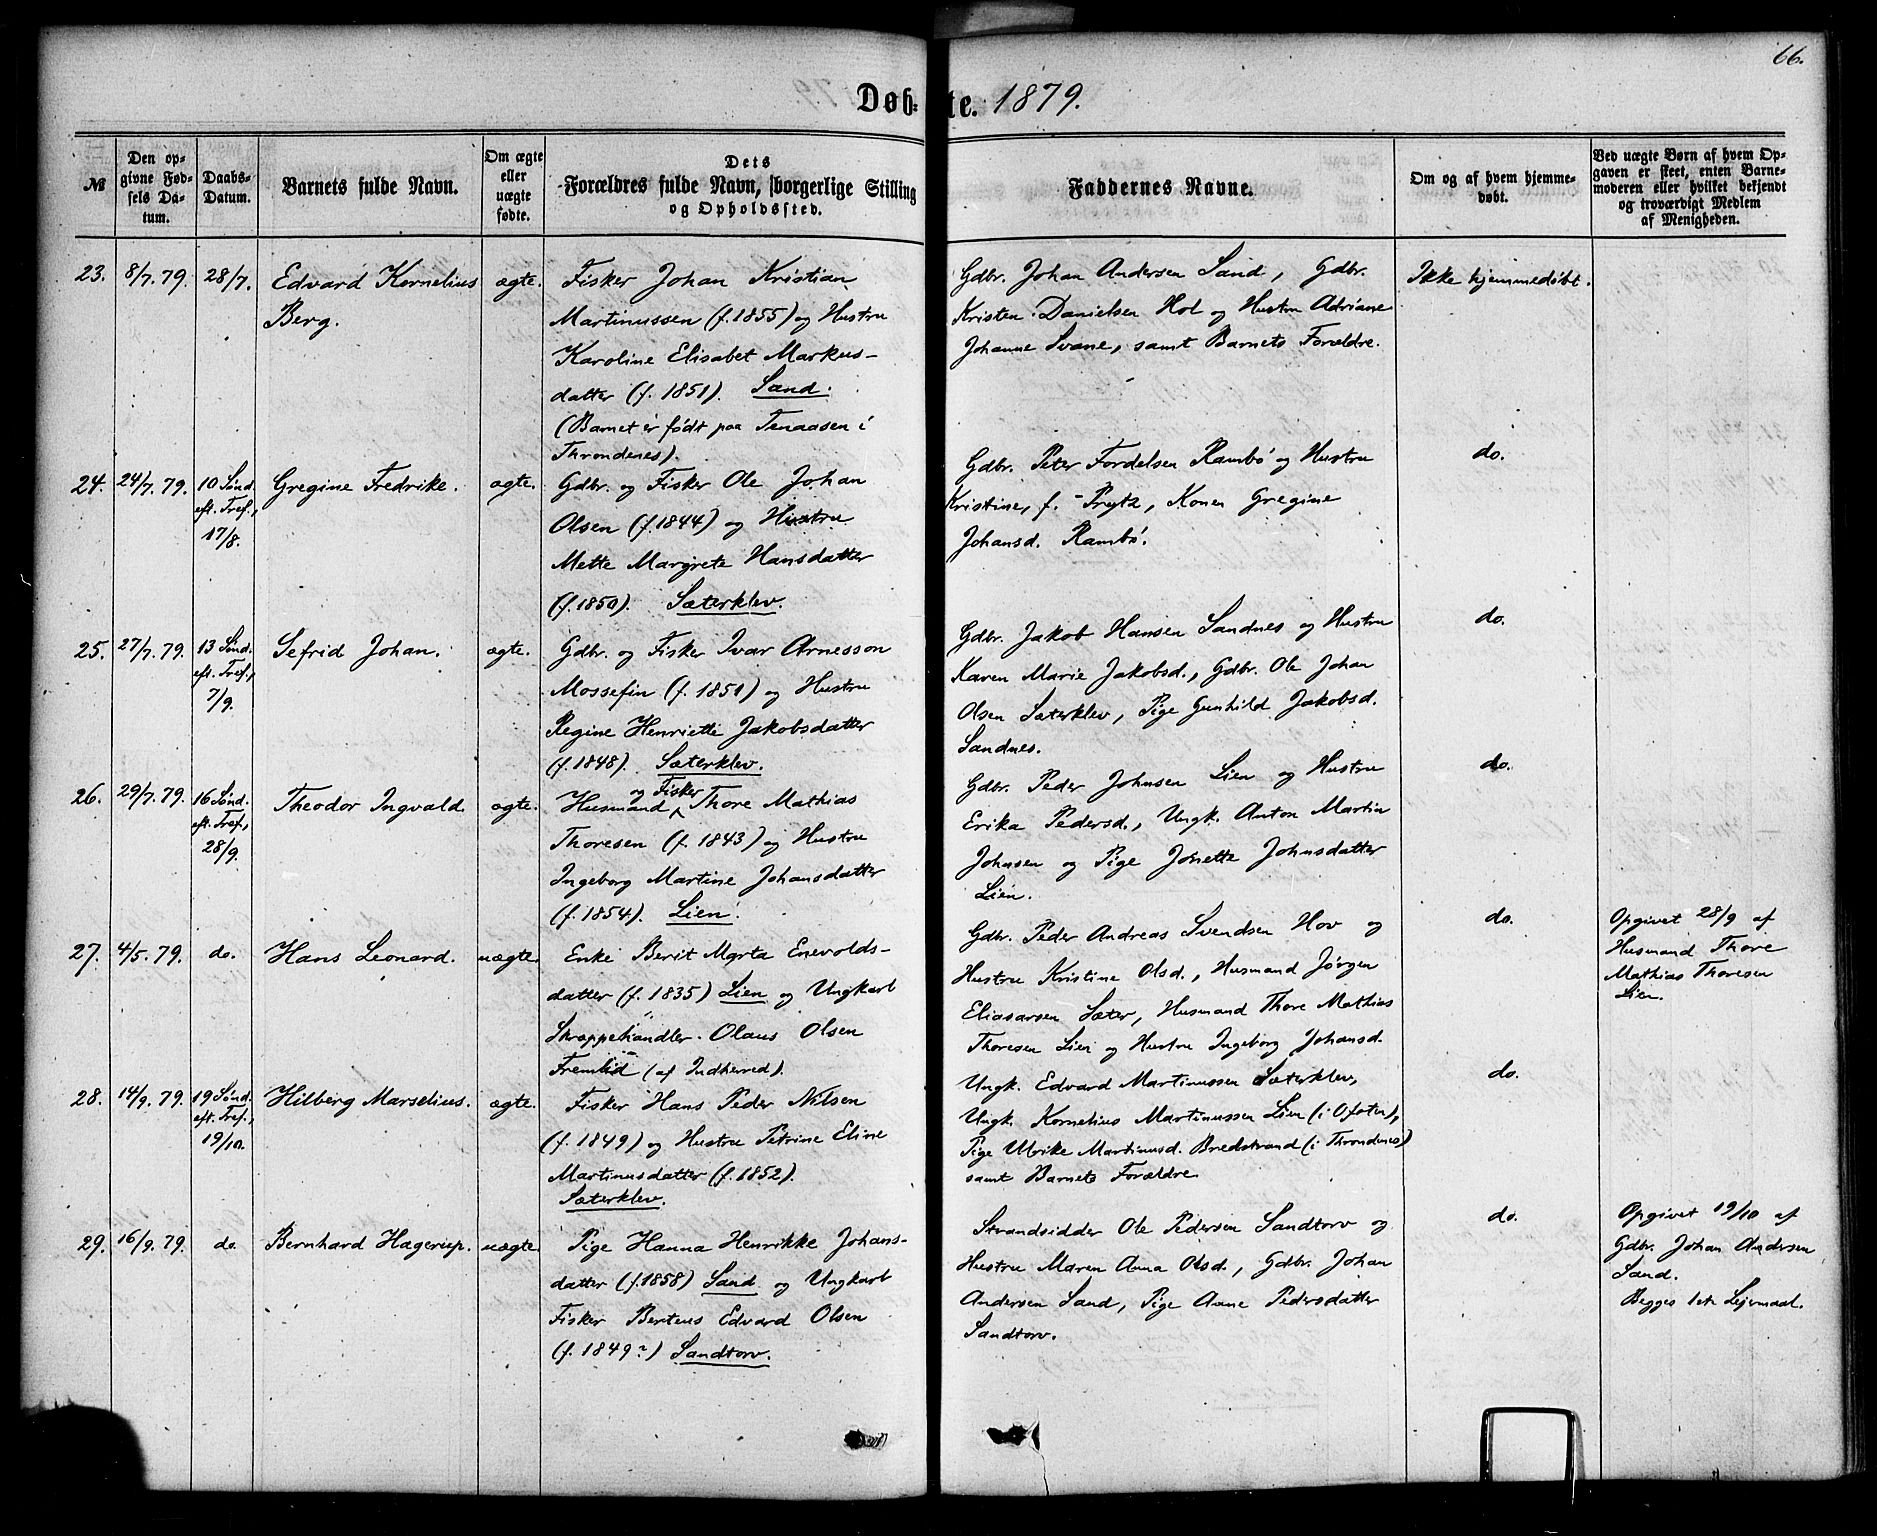 66.
Døbte. 1879.
№
Den opgivne Fødsels Datum.
Daabs-Datum.
Barnets fulde Navn.
Om ægte eller uægte fødte.
Dets Forældres fulde Navn, borgerlige Stilling og Opholdssted.
Faddernes Navne.
Om og af hvem hjemmedøbt.
Ved uægte Børn af hvem Opgaven er skeet, enten Barnemoderen eller hvilket bekjendt og troværdigt Medlem af Menigheden.
23. 8/7. 79. 28/7. Edvard Kornelius ægte.
Berg.
Fisker Johan Kristian
Martinussen (f. 1855) og Hustru
Karoline Elisabet Markus-
datter (f. 1851). Sand.
(Barnet er født paa Tenaasen i
Throndenes).
Gdbr. Johan Andersen Sand, Gdbr.
Kristen Danielsen Hol og Hustru Adriane
Johanne Svane, samt Barnets Forældre.
Ikke hjemmedøbt.
24. 24/7. 79. 10 Sønd.
eft. Tref.,
17/8.
Gregine Fredrike. ægte.
Gdbr. og Fisker Ole Johan
Olsen (f. 1844) og Hustru
Mette Margrete Hansdatter
(f. 1850). Sæterklev.
Gdbr. Peter Fordelsen Rambø og Hustru
Kristine, f. Prytz, Konen Gregine
Johansd. Rambø.
do.
25. 27/7. 79. 13 Sønd.
eft. Tref.,
7/9.
Sefrid Johan. ægte.
Gdbr. og Fisker Ivar Arnesson
Mossefin (f. 1851) og Hustru
Regine Henriette Jakobsdatter
(f. 1848). Sæterklev.
Gdbr. Jakob Hansen Sandnes og Hustru
Karen Marie Jakobsd., Gdbr. Ole Johan
Olsen Sæterklev, Pige Gunhild Jakobsd.
Sandnes.
do.
26. 29/7. 79. 16 Sønd.
eft. Tref.,
28/9.
Theodor Ingvald ægte.
og Fisker
Husmand ^ Thore Mathias
Thoresen (f. 1843) og Hustru
Ingeborg Martine Johansdatter
(f. 1854). Lien.
Gdbr. Peder Johnsen Lien og Hustru
Erika Pedersd., Ungk. Anton Martin
Johnsen og Pige Jonette Johnsdatter
Lien.
do.
27. 4/5. 79. do. Hans Leonard. uægte.
Enke Berit Marta Enevolds-
datter (f. 1835) Lien og Ungkarl
Skræppehandler Olaus Olsen
Fremlid (af Indherred).
Gdbr. Peder Andreas Svendsen Hov og
Hustru Kristine Olsd., Husmand Jørgen
Eliasarsen Sæter, Husmand Thore Mathias
Thoresen Lien og Hustru Ingeborg Johansd.
do.
Opgivet 28/9 af
Husmand Thore
Mathias Thoresen
Lien.
28. 14/9. 79. 19 Sønd.
eft. Tref.,
19/10.
Hilberg Marselius. ægte.
Fisker Hans Peder Nilsen
(f. 1849) og Hustru Petrine Eline
Martinusdatter (f. 1852).
Sæterklev.
Ungk. Edvard Martinussen Sæterklev,
Ungk. Kornelius Martinussen Lien (i Ofoten),
Pige Ulrike Martinusd. Bredstrand (i Throndenes)
samt Barnets Forældre
do.
29. 16/9. 79. do. Bernhard Hagerup. uægte.
Pige Hanna Henrikke Johans-
datter (f. 1858) Sand og Ungkarl
Fisker Berteus Edvard Olsen
(f. 1849?) Sandtorv.
Strandsidder Ole Pedersen Sandtorv og
Hustru Maren Anna Olsd., Gdbr. Johan
Andersen Sand, Pige Anne Pedersdatter
Sandtorv.
do.
Opgivet 19/10 af
Gdbr. Johan Andersen
Sand.
Begges 1ste Lejermaal.